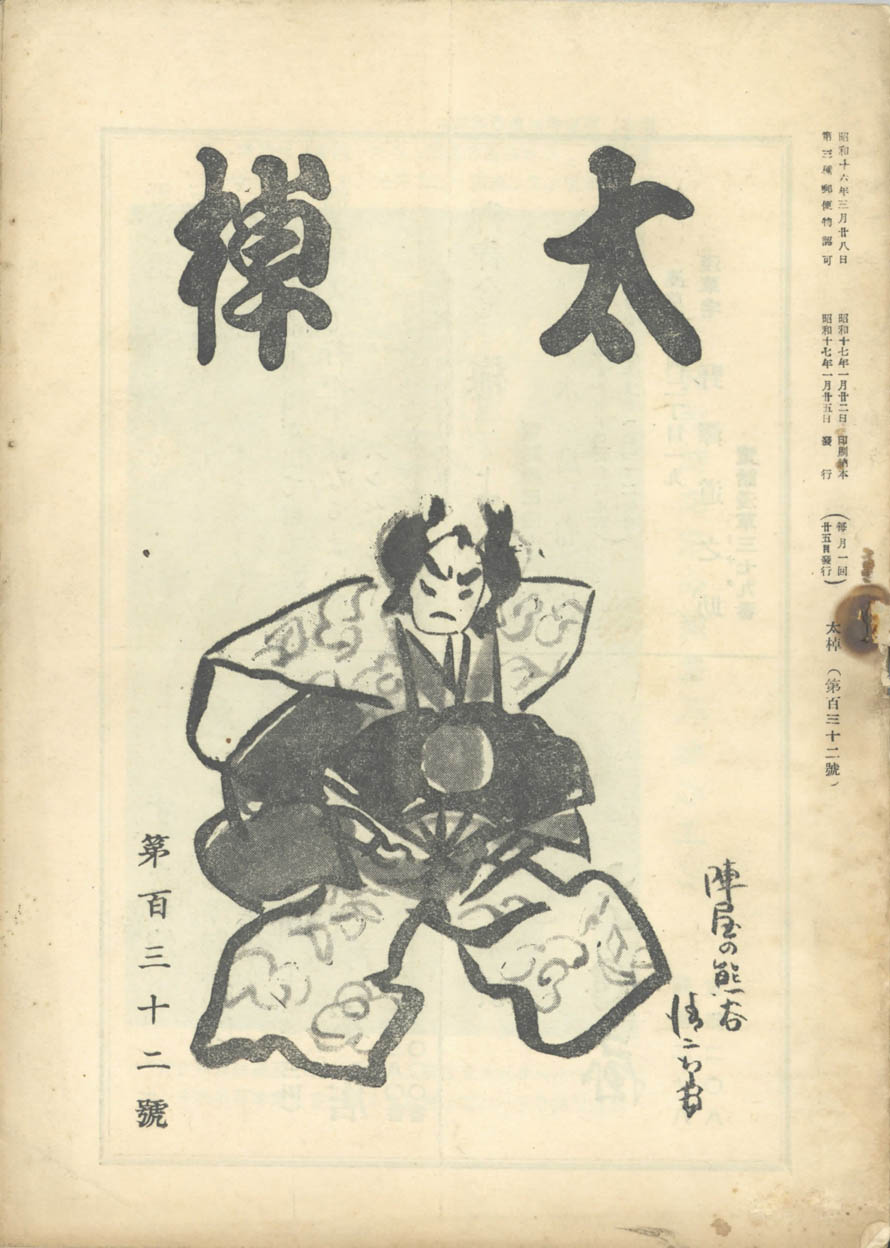 太棹
昭和十六年三月廿八日
第三種郵便物認可
昭和十七年一月廿二日 印刷納本
昭和十七年一月廿五日 發行
(每月一回
廿五日發行)
太棹 (第百三十二號)
陣屋の熊谷
第百三十二號